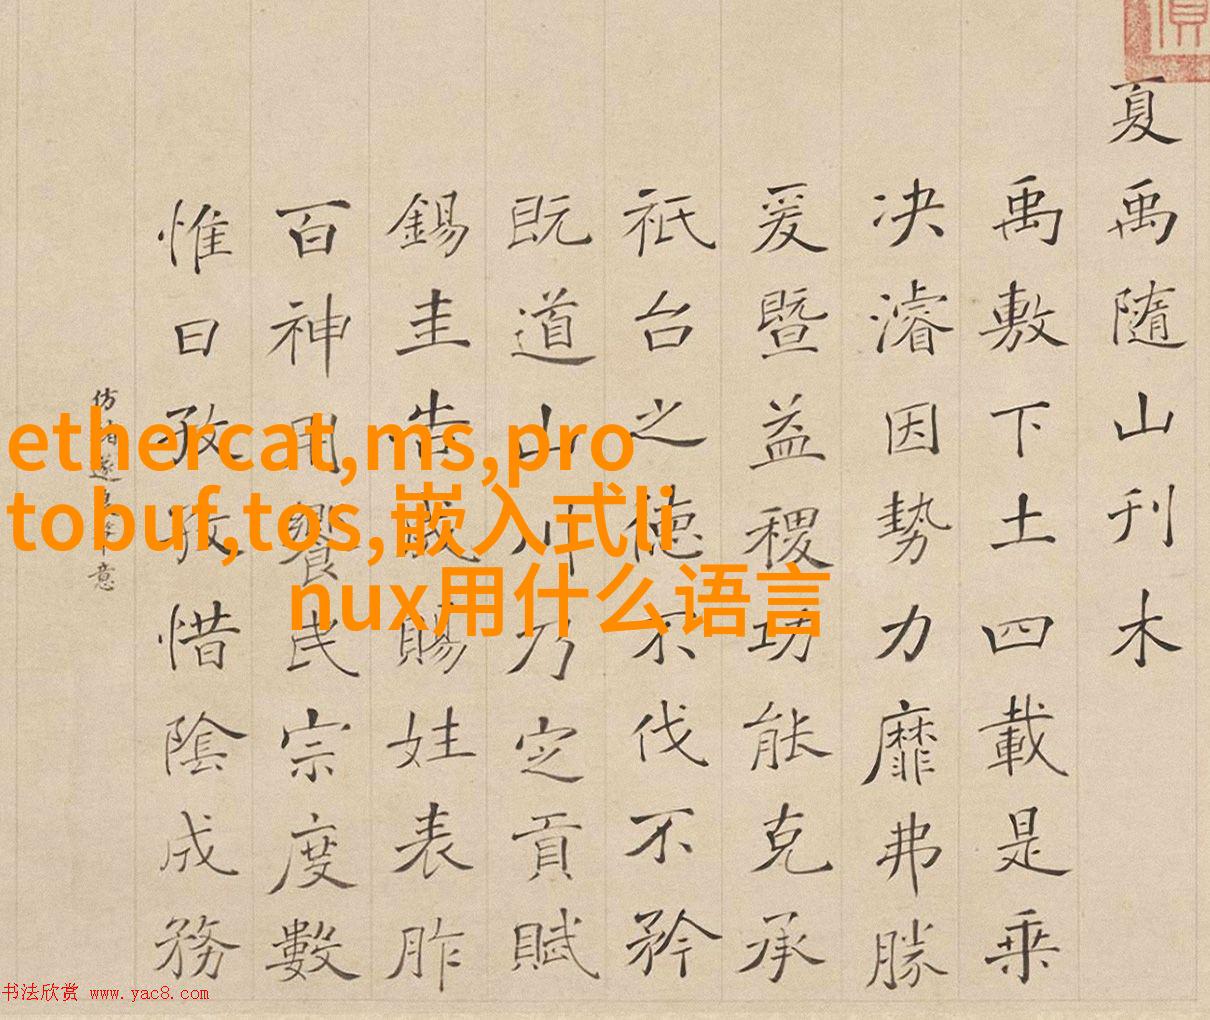 夏禹隨山刊木
禹敷下土四載是乗
决濬因勢力靡弗勝
爰暨益稷功能克承
祇台之德不伐不矜
既道山川乃定貢賦
錫圭告成賜姓表胙
百神用饗民宗度數
惟日孜孜惜陰成務
仿褚遂良筆意
ethercat,ms,pro
tobuf,tos,嵌入式li
nux用什么语言
书法欣赏 www.yac8.com